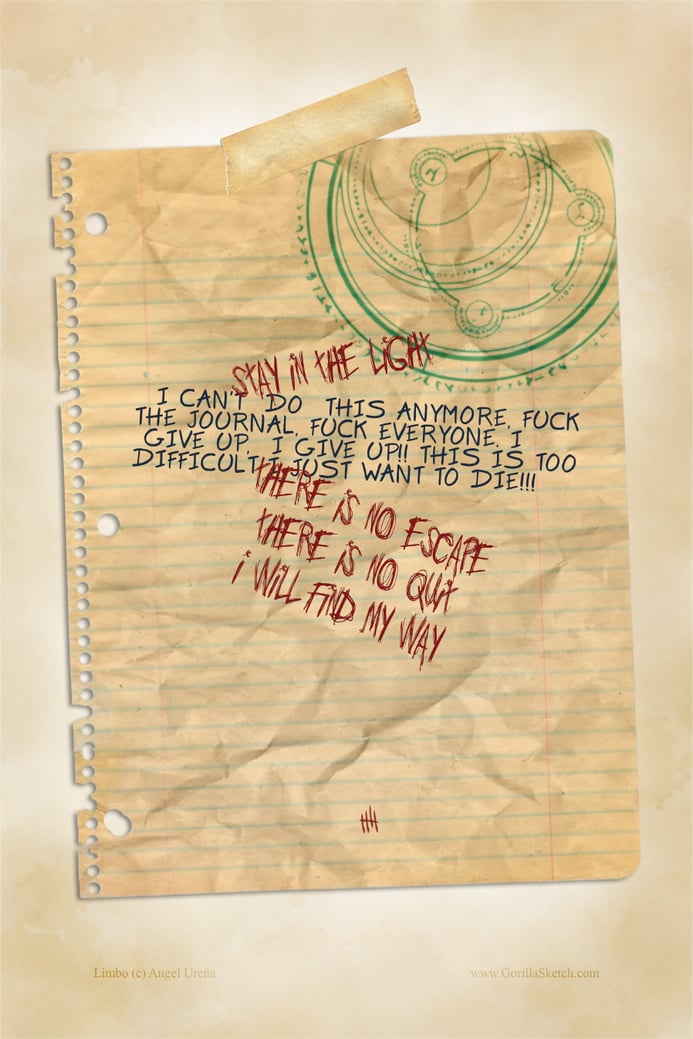 STAY IN THE LIGHT
I CAN'T DO THIS ANYMORE, FUCK
THE JOURNAL, FUCK EVERYONE. I
GIVE UP, I GIVE UP!! THIS IS TOO
DIFFICULT, I JUST WANT TO DIE!!!
THERE IS NO ESCAPE
THERE IS NO QUIT
I WILL FIND MY WAY
Limbo (c) Angel Ureña
www.GorillaSketch.com